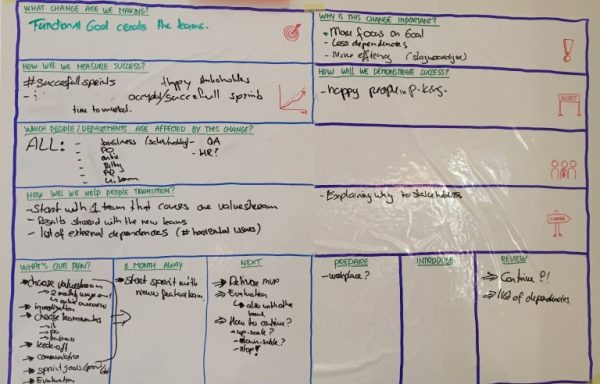 WHAT CHANGE ARE WE MAKING?
Functional Goal the teams.
WHY IS THIS CHANGE IMPORTANT?
- More focus on Goal
- Less dependencies
- More efficiency
HOW WILL WE MEASURE SUCCESS?
# succesfull sprints
Happy stakeholders
/succesfull sprints
time to market.
HOW WILL WE DEMONSTRATE SUCCESS?
- happy people in
WHICH PEOPLE/DEPARTMENTS ARE AFFECTED BY THIS CHANGE?
ALL:
- business
- QA
- PO
- HR?
HOW WILL WE HELP PEOPLE TRANSITION?
- Start with 1 team that covers one valuestream
- Results shared with the new teams
- list of external dependencies (# horizontal issues)
- Explaining why to stakeholders
CHANGE
WHAT'S OUR PLAN?
choose valuestream
investigation
choose teammates
PO
business
kick-off
communication
sprint goals
Evaluation
1 MONTH AWAY
Start sprint with new featureteam
NEXT
Evaluation
How to continue?
up-scale?
down-scale?
stop?
PREPARE
- workplace?
INTRODUCE
REVIEW
Continue ?!
list of dependencies